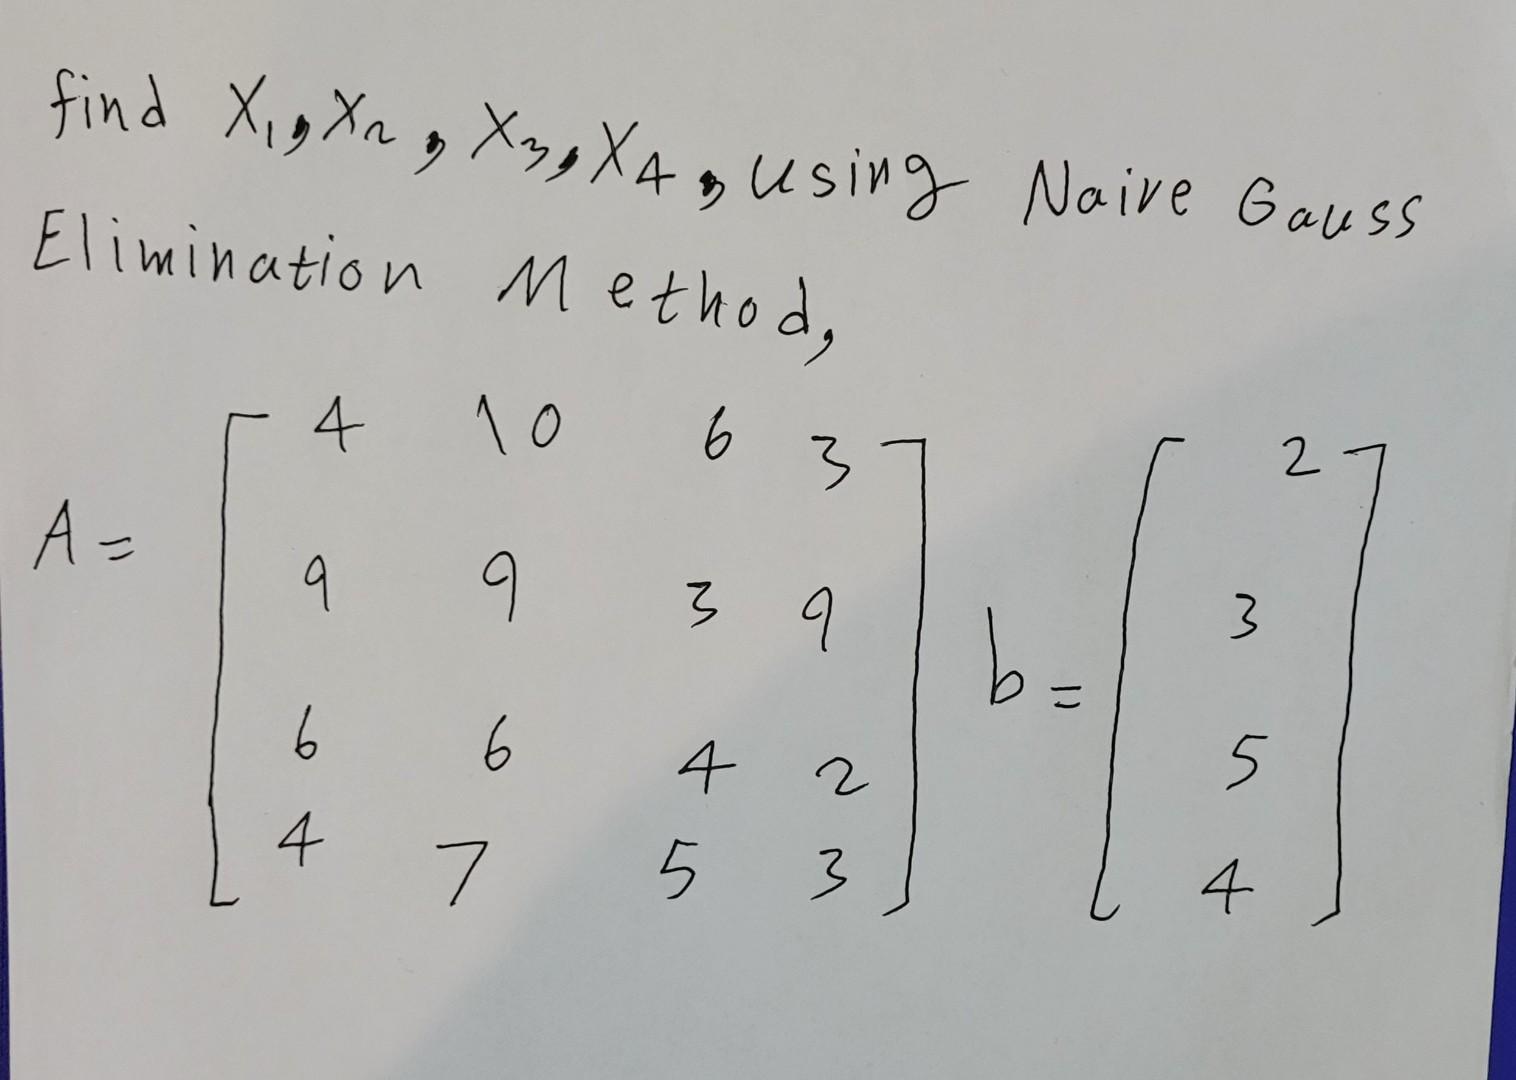 find X₁, X₂, X₃, X₄, using Naive Gauss
Elimination Method,
A = [ 4 10 6 3
9 9 3 9
6 6 4 2
4 7 5 3 ]
b = [ 2
3
5
4 ]